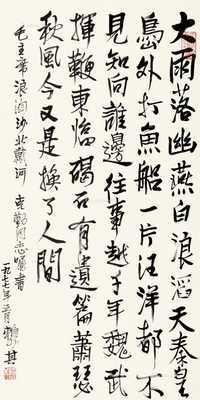 大雨落幽燕白浪滔天秦皇
島外打魚船一片汪洋都不
見知向誰邊往事越千年魏武
揮鞭東臨碣石有遺篇蕭瑟
秋風今又是換了人間
毛主席浪淘沙北戴河 克勤同志囑書
一九七七年